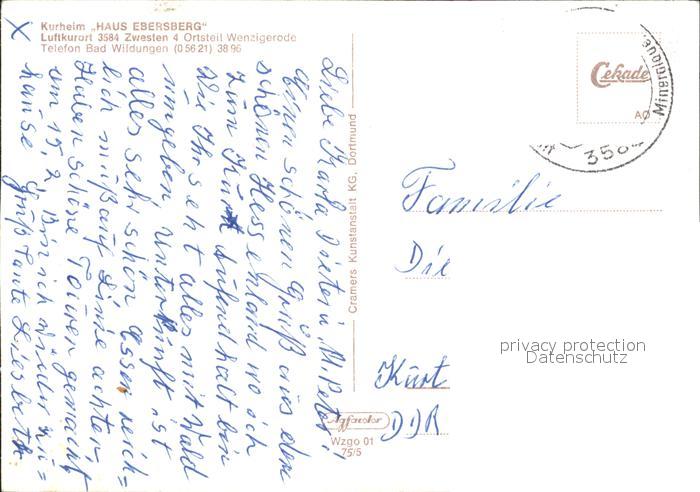 X
Kurheim „HAUS EBERSBERG"
Luftkurort 3584 Zwesten 4 Ortsteil Wenzigerode
Telefon Bad Wildungen (0 56 21) 38 96
Liebe Karla Dieter u. M. Peter!
Einen schönen Gruß aus dem
schönen Hessenland wo ich
zum Kur Aufendhalt bin
Wie Ihr seht alles mit Wald
umgeben. Unterkunft ist
alles sehr schön Essen reich-
lich muß auf Linie achten
Haben schöne Touren gemacht
am 15.2. bin ich wieder zu=
hause Gruß Tante Liesbeth
Cramers Kunstanstalt KG, Dortmund
Cekade
AO
Mineralque
358
Familie
Die
Kurt
DDR
privacy protection
Datenschutz
Agfacolor
Wzgo 01
75/5